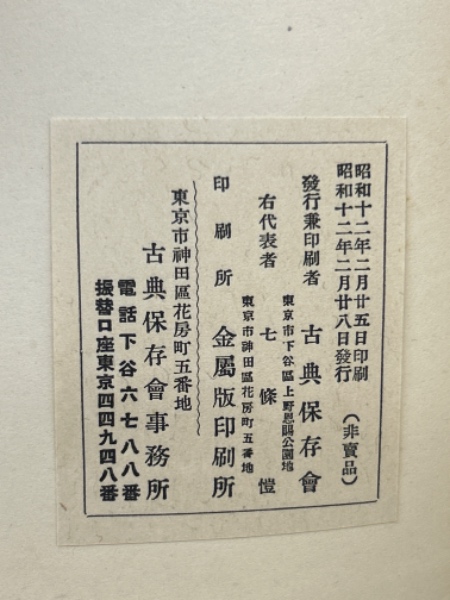 昭和十二年二月廿五日印刷
昭和十二年二月廿八日發行
(非賣品)
東京市下谷區上野恩賜公園地
發行兼印刷者 古典保存會
右代表者 七條愷
東京市神田區花房町五番地
印刷所 金屬版印刷所
東京市神田區花房町五番地
古典保存會事務所
電話下谷六七八八番
振替口座東京四四九四八番